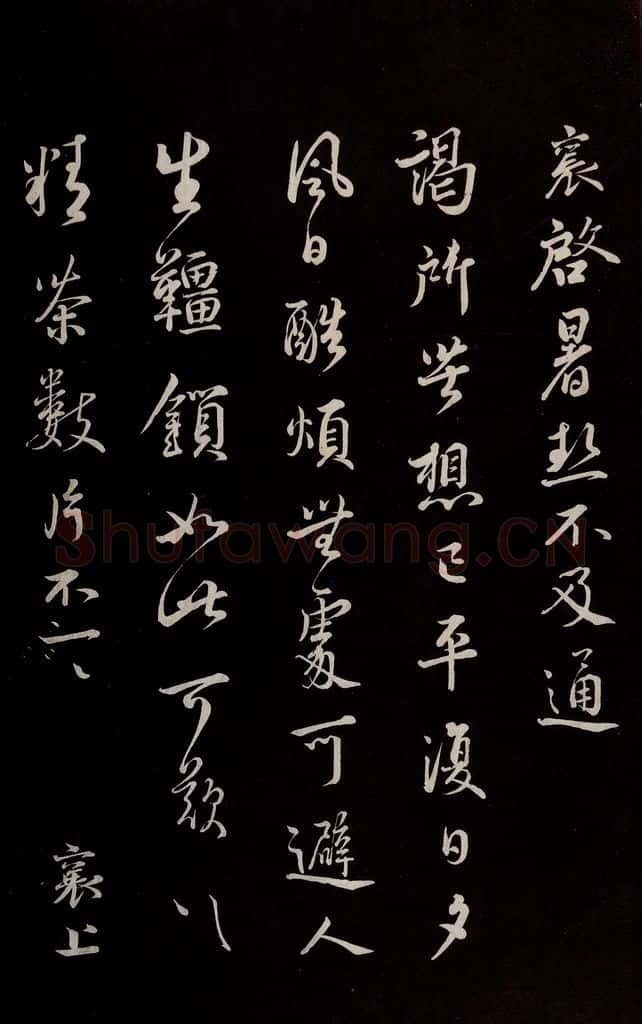 襄啓暑熱不及通
謁所苦想已平復日夕
風日酷煩無處可避人
生韁鎖如此可歎以
精茶數片不一一
襄上
Shufawang.CN